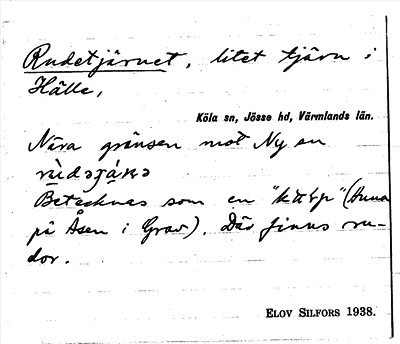 Rudetjärnet, litet tjärn i
Hälle,
Köla sn, Jösse hd, Värmlands län.
Nära gränsen mot Ny sn
Betecknas som en "kulp" (Anna
på Åsen i Grav). Där finns ru-
dor.
ELOV SILFORS 1938.